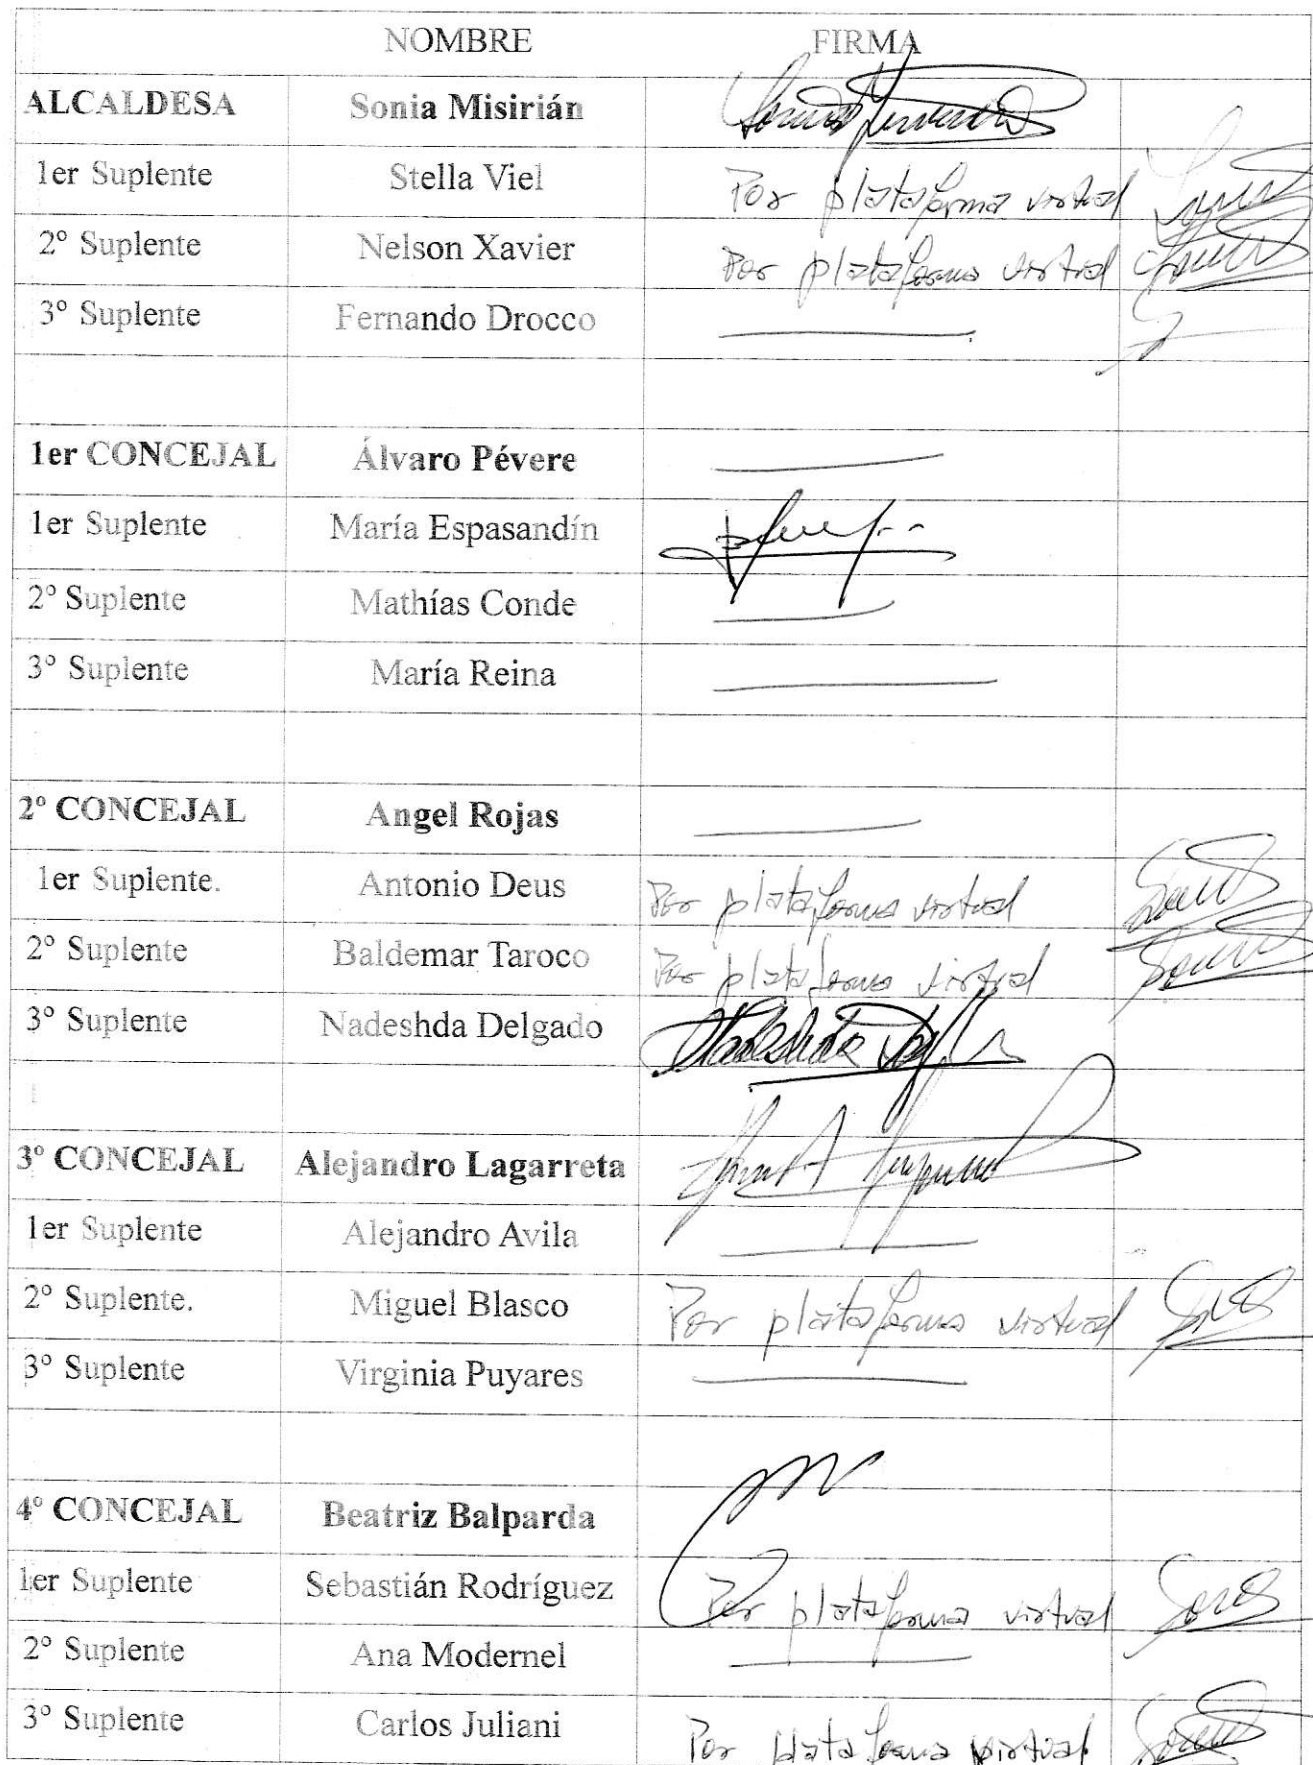 NOMBRE FIRMA
ALCALDESA Sonia Misirián
1er Suplente Stella Viel Por plataforma virtual
2º Suplente Nelson Xavier Por plataforma virtual
3º Suplente Fernando Drocco
1er CONCEJAL Álvaro Pévere
1er Suplente María Espasandín
2º Suplente Mathías Conde
3º Suplente María Reina
2º CONCEJAL Angel Rojas
1er Suplente. Antonio Deus Por plataforma virtual
2º Suplente Baldemar Taroco Por plataforma virtual
3º Suplente Nadeshda Delgado
3º CONCEJAL Alejandro Lagarreta
1er Suplente Alejandro Avila
2º Suplente. Miguel Blasco Por plataforma virtual
3º Suplente Virginia Puyares
4º CONCEJAL Beatriz Balparda
1er Suplente Sebastián Rodríguez Por plataforma virtual
2º Suplente Ana Modernel
3º Suplente Carlos Juliani Por plataforma virtual